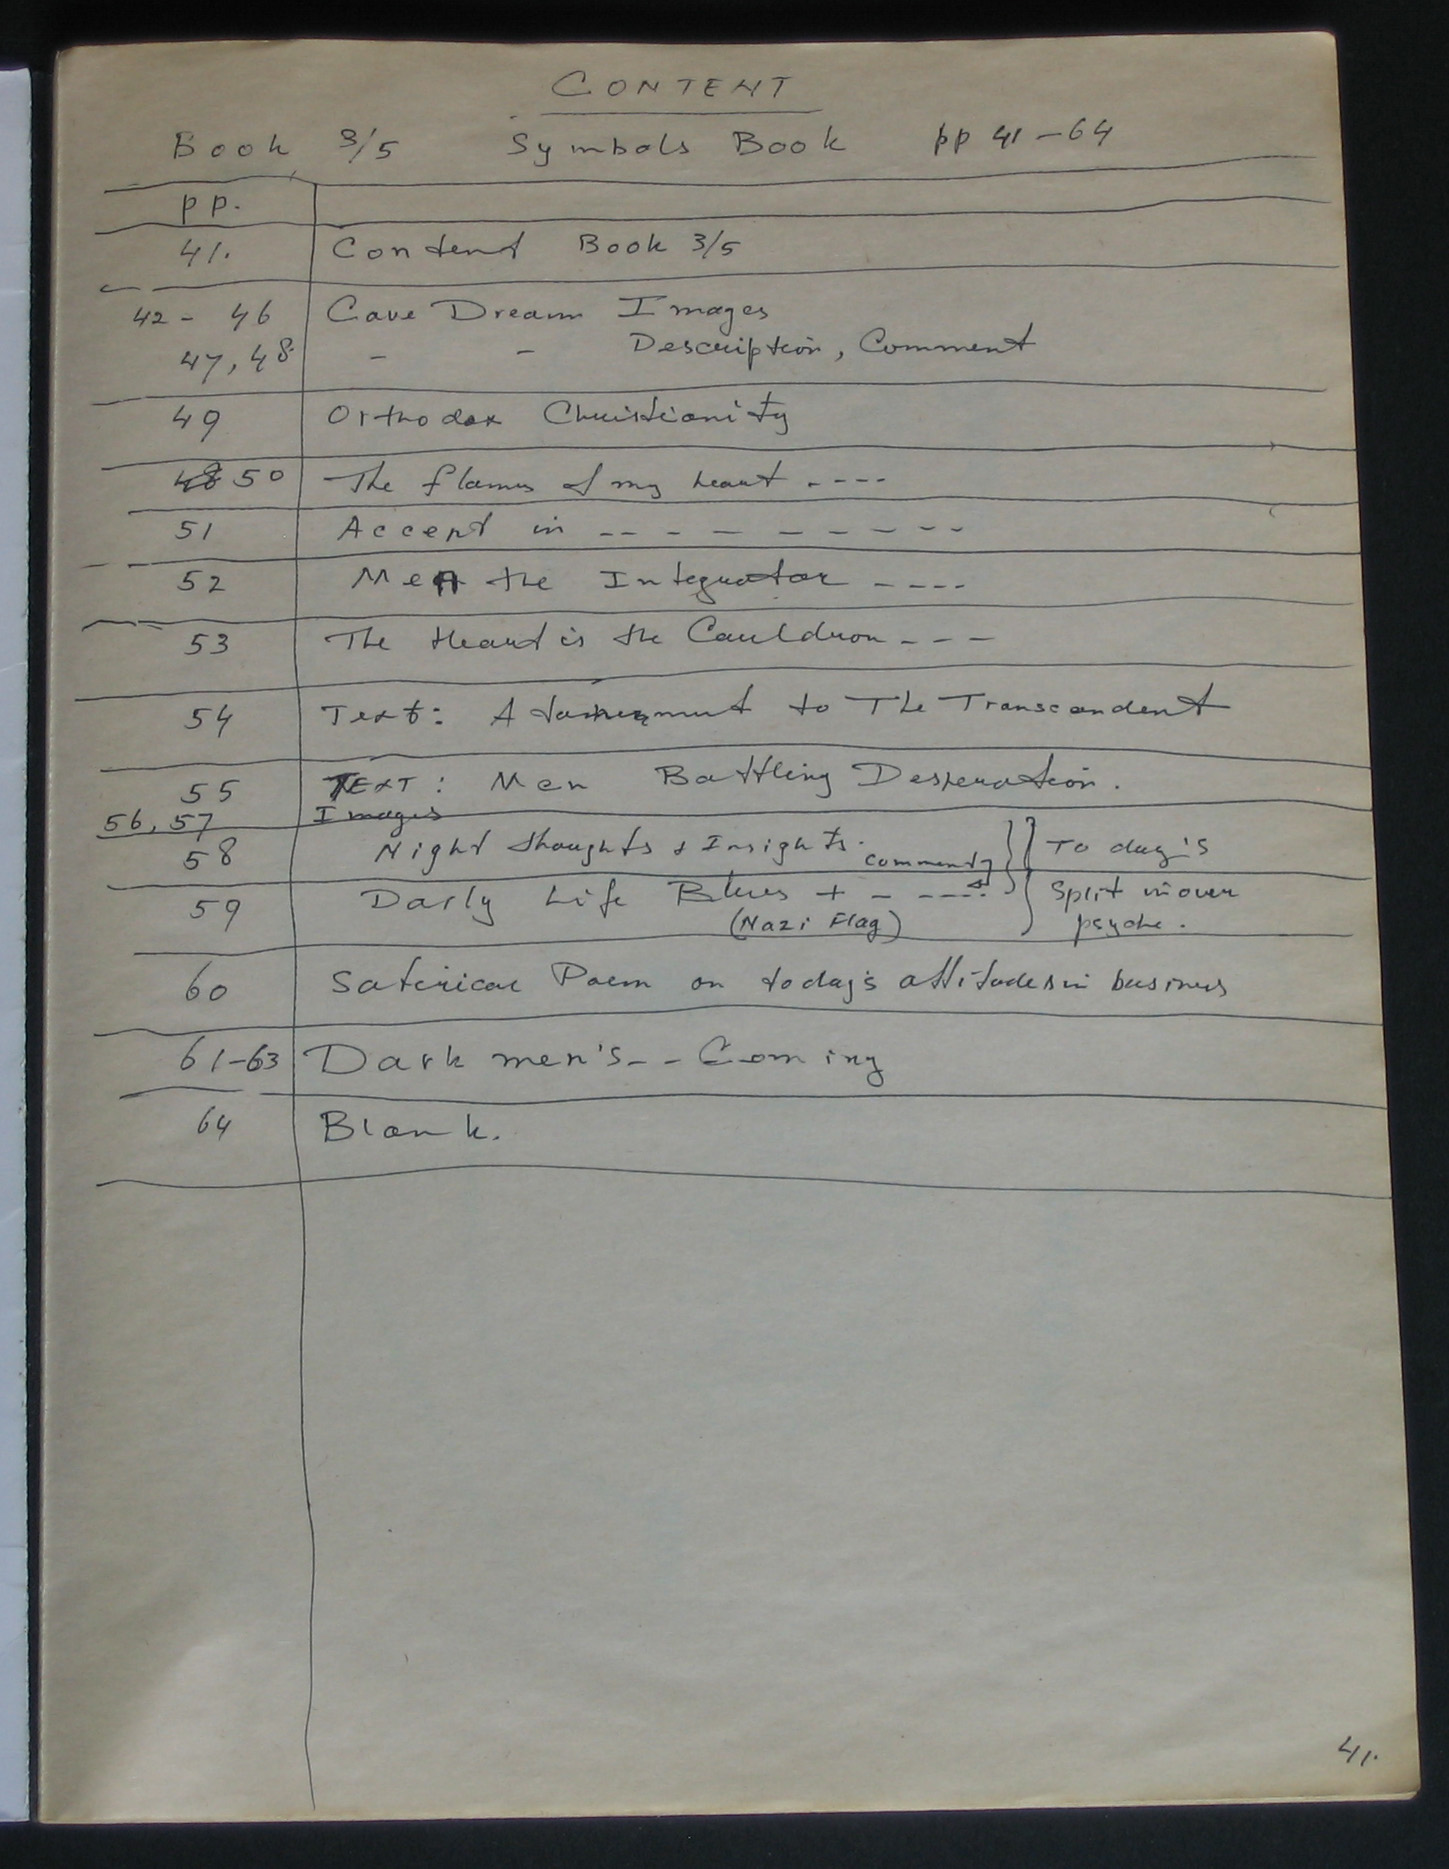 CONTENT
Book 3/5 Symbols Book pp 41-64
pp.
41. Content Book 3/5
42 - 46 Cave Dream Images
47, 48 - - Description, Comment
49 Orthodox Christianity
48 50 The flames of my heart ----
51 Accept in -- - - - - - - -
52 Men the Integrator ----
53 The Heart is the Cauldron ---
54 Text: Attainment to The Transcendent
55 TEXT: Men Battling Desperation.
56, 57 Images
58 Night thoughts & Insights. comments } To day's
59 Daily Life Blues + - ---- } Split in our
(Nazi Flag) psyche.
60 Saterical Poem on today's attitudes in business
61-63 Dark men's -- Coming
64 Blank.
41.